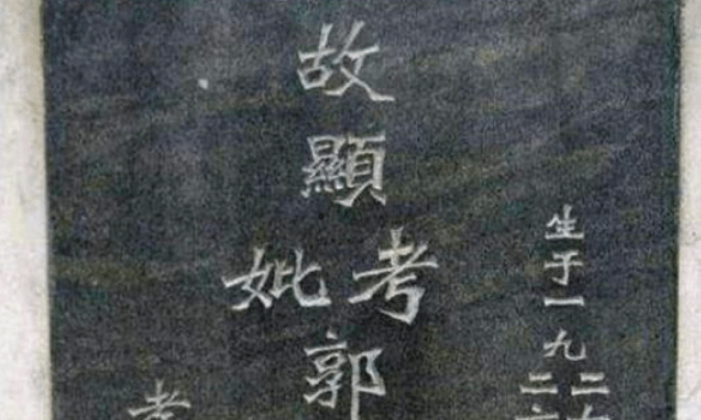 生于一九二
二
故顯考妣郭
孝